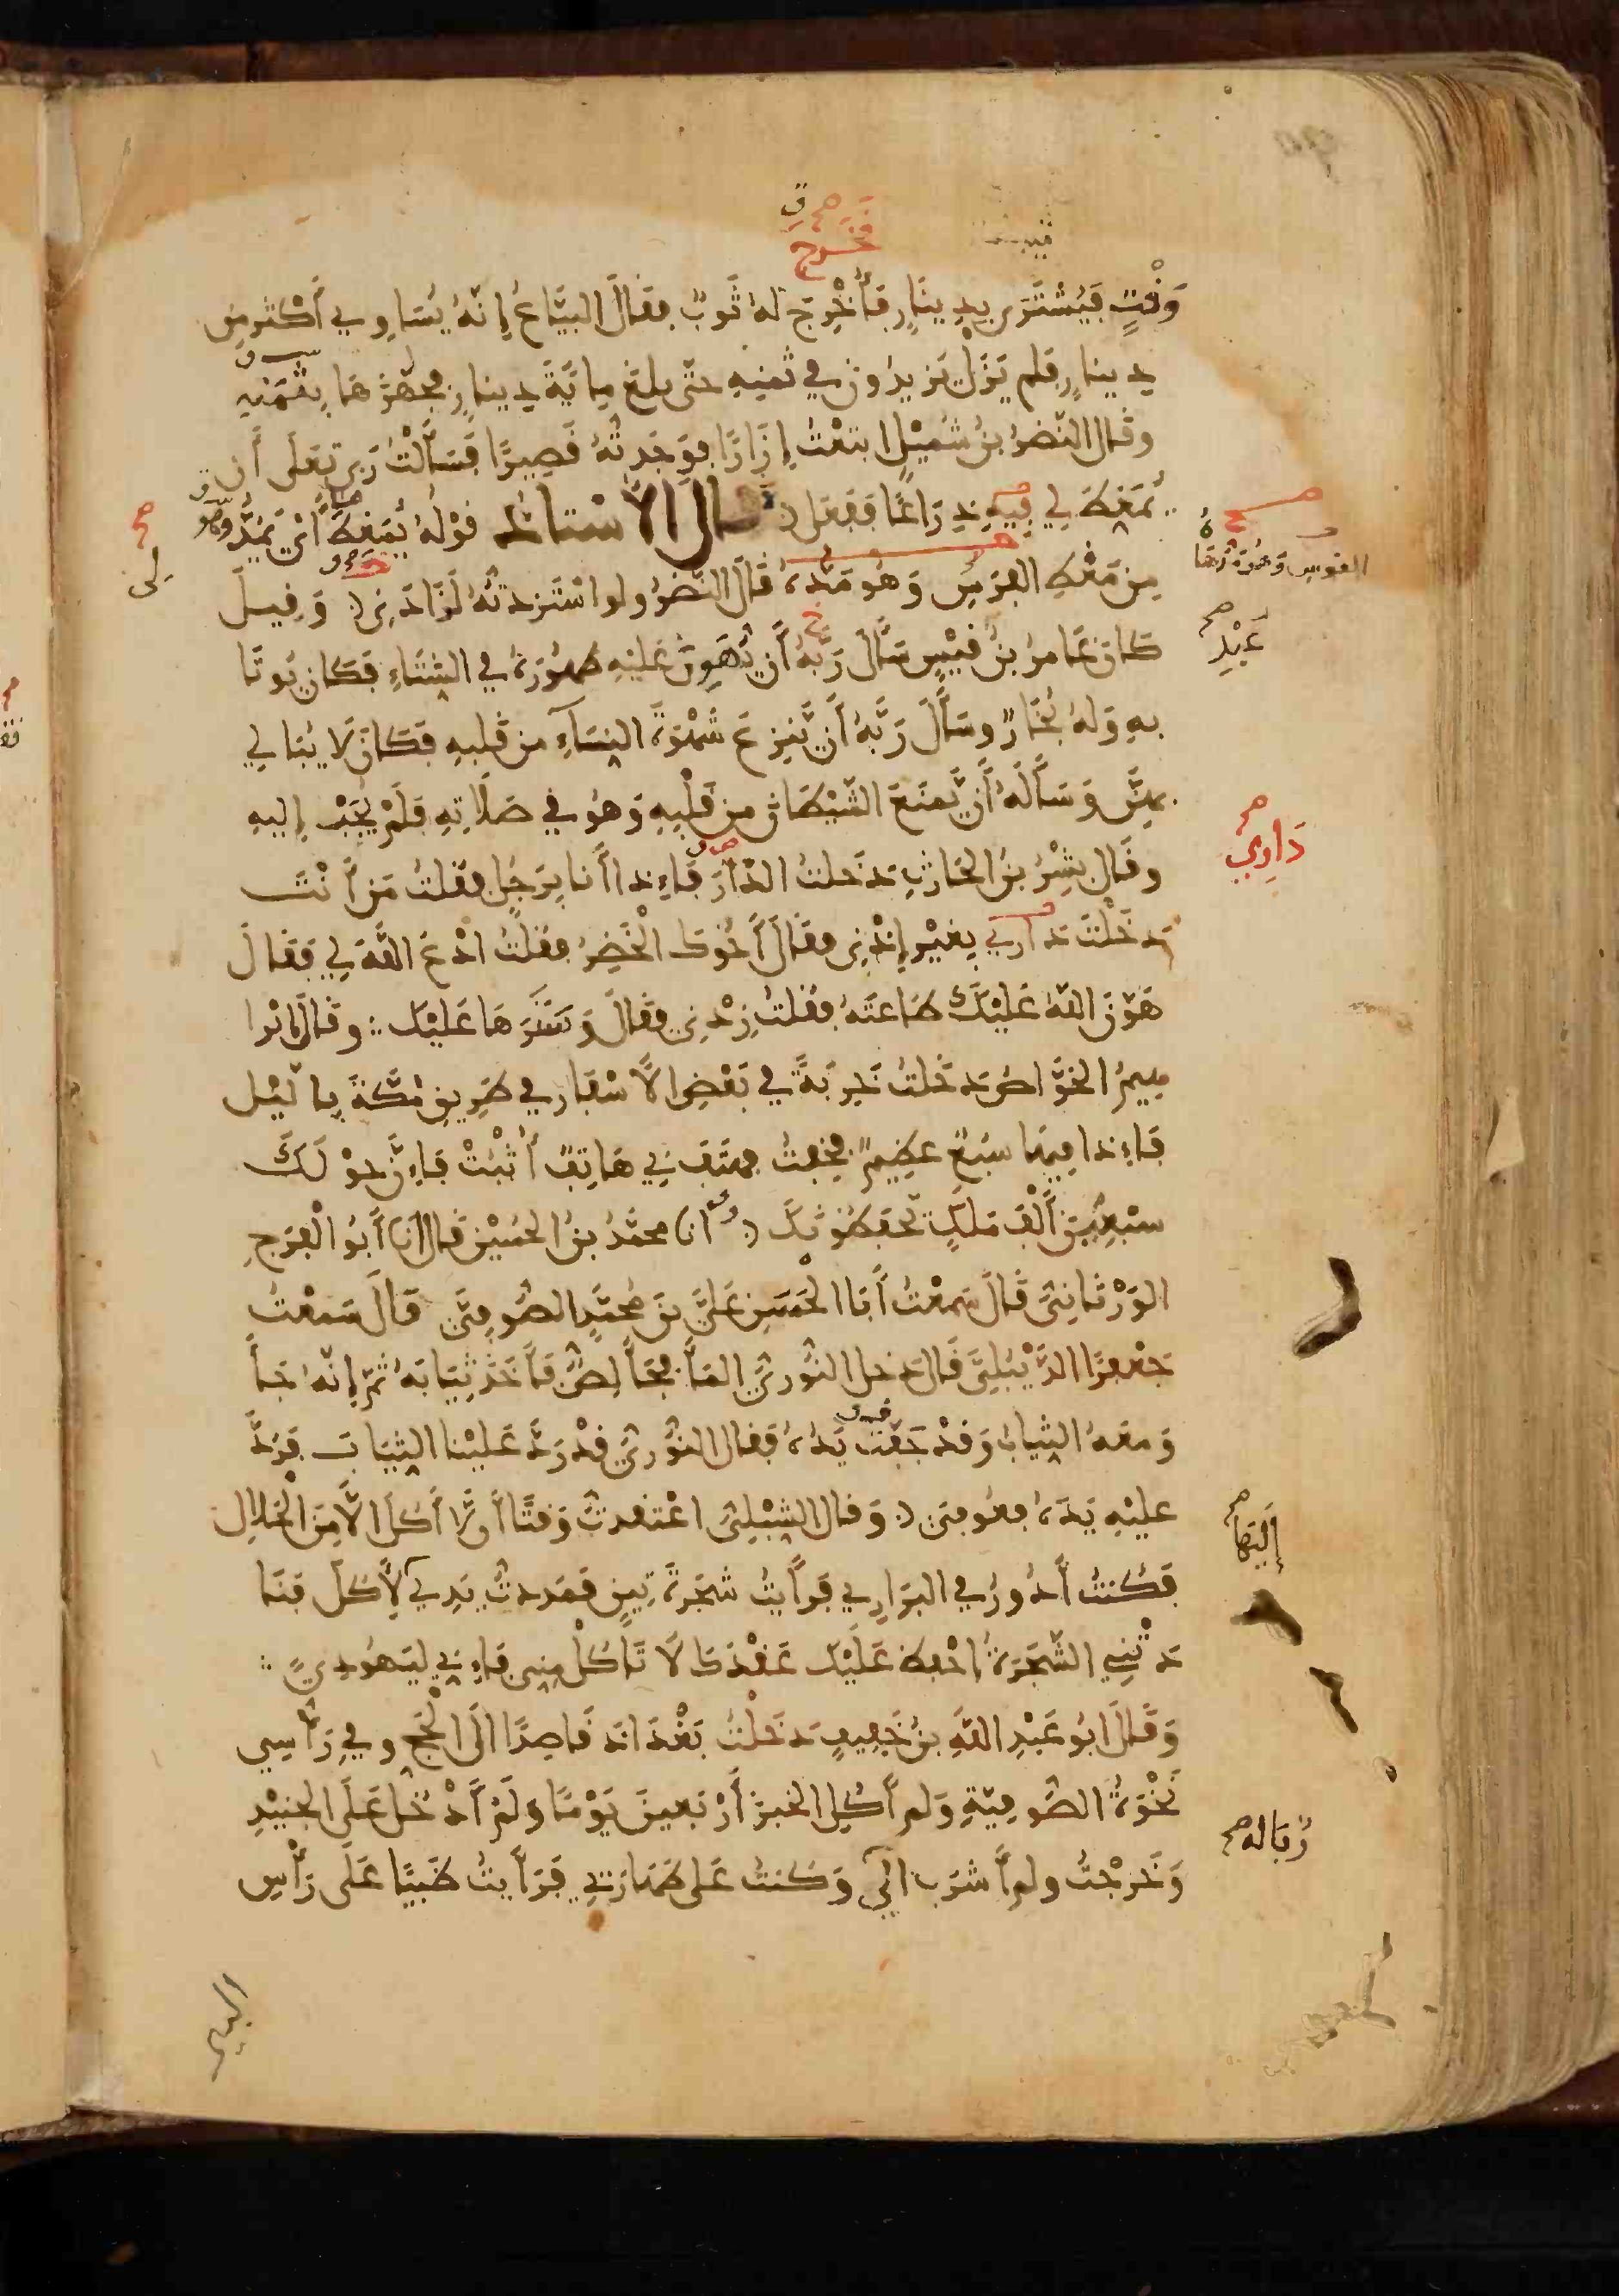 وَقْتٍ فَيُشْتَرَى بِدِينَارٍ فَأُخْرِجَ لَهُ ثَوْبٌ فقَالَ البَيَّاعُ إِنَّهُ يُسَاوِي أَكْثَر مِن
دِينارٍ فلم يَزَل يَزيدُونَ في ثَمنِهِ حتّى بلغ مِائَةَ دِينارٍ فجهّزهَا بِثَمَنِهِ
وقال النّضرُ بنُ شُمَيْلٍ ابتعْتُ إِزَارًا فوَجَدتُهُ قَصِيرًا فَسَأَلْتُ رَبي تعَلَى أن
يُمَغِّطَ لِي فِيهِ ذِرَاعًا فَفَعَل قَـال الأسْتاذ قوْلهُ يُمَغِّطَ أَيْ يَمُدَّ وهو
مِن مَغْطِ القوس وَهُو مَدّهُ قَالَ النَّضْرُ ولو اسْتَزدتُهُ لَزَادَنِي وَقِيلَ
كانَ عَامرُ بنُ قَيْسٍ سَأَلَ رَبَّهُ أَن يُهَوِّنَ عَلَيْهِ طَهُورَهُ في الشِّتَاءِ فَكَانَ يُوتَا
بهِ وَلهُ بُخَارٌ وسَأَلَ رَبَّهُ أَن يَّنزِعَ شَهْوَةَ النِسَآءِ من قلبهِ فكَانَ لَا يُبَالي
بهِنَّ وَسَأَلَهُ أَن يَّمنَعَ الشّيْطَانَ من قَلْبِهِ وَهُو في صَلَاتِهِ فَلَمْ يُجَبْ إليهِ
وقَال بِشْرُ بنُ الحَارِثِ دخلتُ الدّارَ فَإِذا أَنا بِرَجُلٍ فقلتُ مَن أَنْتَ
دَخَلْتَ دَارِي بِغَيْرِ إِذْنِي فقَالَ أَخُوكَ الْخَضِرُ فقلتُ ادْعُ اللَّهَ لِي فَقَالَ
هَوّنَ اللهُ عَلَيْكَ طَاعتَهُ فقلتُ زِدْنِي فقَالَ وَسَتَرَهَا عَلَيْك وقَالَ ابْرا
هِيمُ الخَوَّاصُ دَخلتُ خَرِبَةً في بَعْضِ الأَسْفَارِ في طَرِيقِ مَكّةَ بِاللَّيْل
فَإِذا فِيهَا سَبُعٌ عَظِيمٌ فخِفتُ فهتَفَ بِي هَاتِفٌ أثْبُتْ فَإِنَّ حوْلَكَ
سَبْعِينَ أَلْفَ مَلَكٍ يَّحفَظُونَكَ أنا محمّدُ بنُ الحُسَيْن قال أنا أَبُو الْفَرَجِ
الوَرْثانِيُّ قَالَ سَمعْتُ أَبَا الْحَسَنِ عَلِيَّ بنَ مُحَمَّدٍ الصُّوفِيَّ قَالَ سَمعْتُ
جَعْفَرًا الدَّيْبُلِيَّ قَال دَخل النُّورِيُّ المَآءَ فجَآءَ لِصٌّ فَأَخَذَ ثِيَابَهُ ثمّ إِنَّهُ جَآءَ
وَمَعَهُ الثيابُ وَقدْ جَفَّتْ يَدُهُ فَقال النُّورِيُّ قدْ رَدَّ عَلَيْنا الثيَابَ فَرُدَّ
عليْهِ يَدَهُ فعُوفيَ وَقال الشِّبْلِيُّ اعْتقدتُ وَقتًا أَن لّا أَكُلَ الَّا مِنَ الْحَلالِ
فَكُنتُ أَدُورُ في البَرَارِي فَرأَيتُ شجَرَةَ تِينٍ فمَددتُ يَدِي لأكُلَ فنَا
دَتْنِي الشّجَرَةُ احْفظْ عَلَيْك عَقْدَكَ لَا تَأْكُلْ مِنِي فَإِنِي لِيَهُودِيٍّ
وَقَالَ ابُو عَبْدِ اللهِ بنُ خَفِيفٍ دَخَلْتُ بَغْدَادَ قَاصِدًا الَى الْحَجِّ وفِي رَأْسِي
نَخْوَةُ الصُّوفِيّةِ وَلم أَكُلِ الخبزَ أَرْبَعِينَ يَوْمًا وَلَمْ أَدْخُل عَلَى الجنيْدِ
وَخَرجْتُ ولم أَشْرَبِ إِلَى وَكنتُ عَلى طَهَارَتِي فَرَأَيتُ ظَبْيًا عَلَى رَأْسِ
فَخَرج
عَبْدِ
دَارِي
إِلَيْهَا
زُبَاله
البير